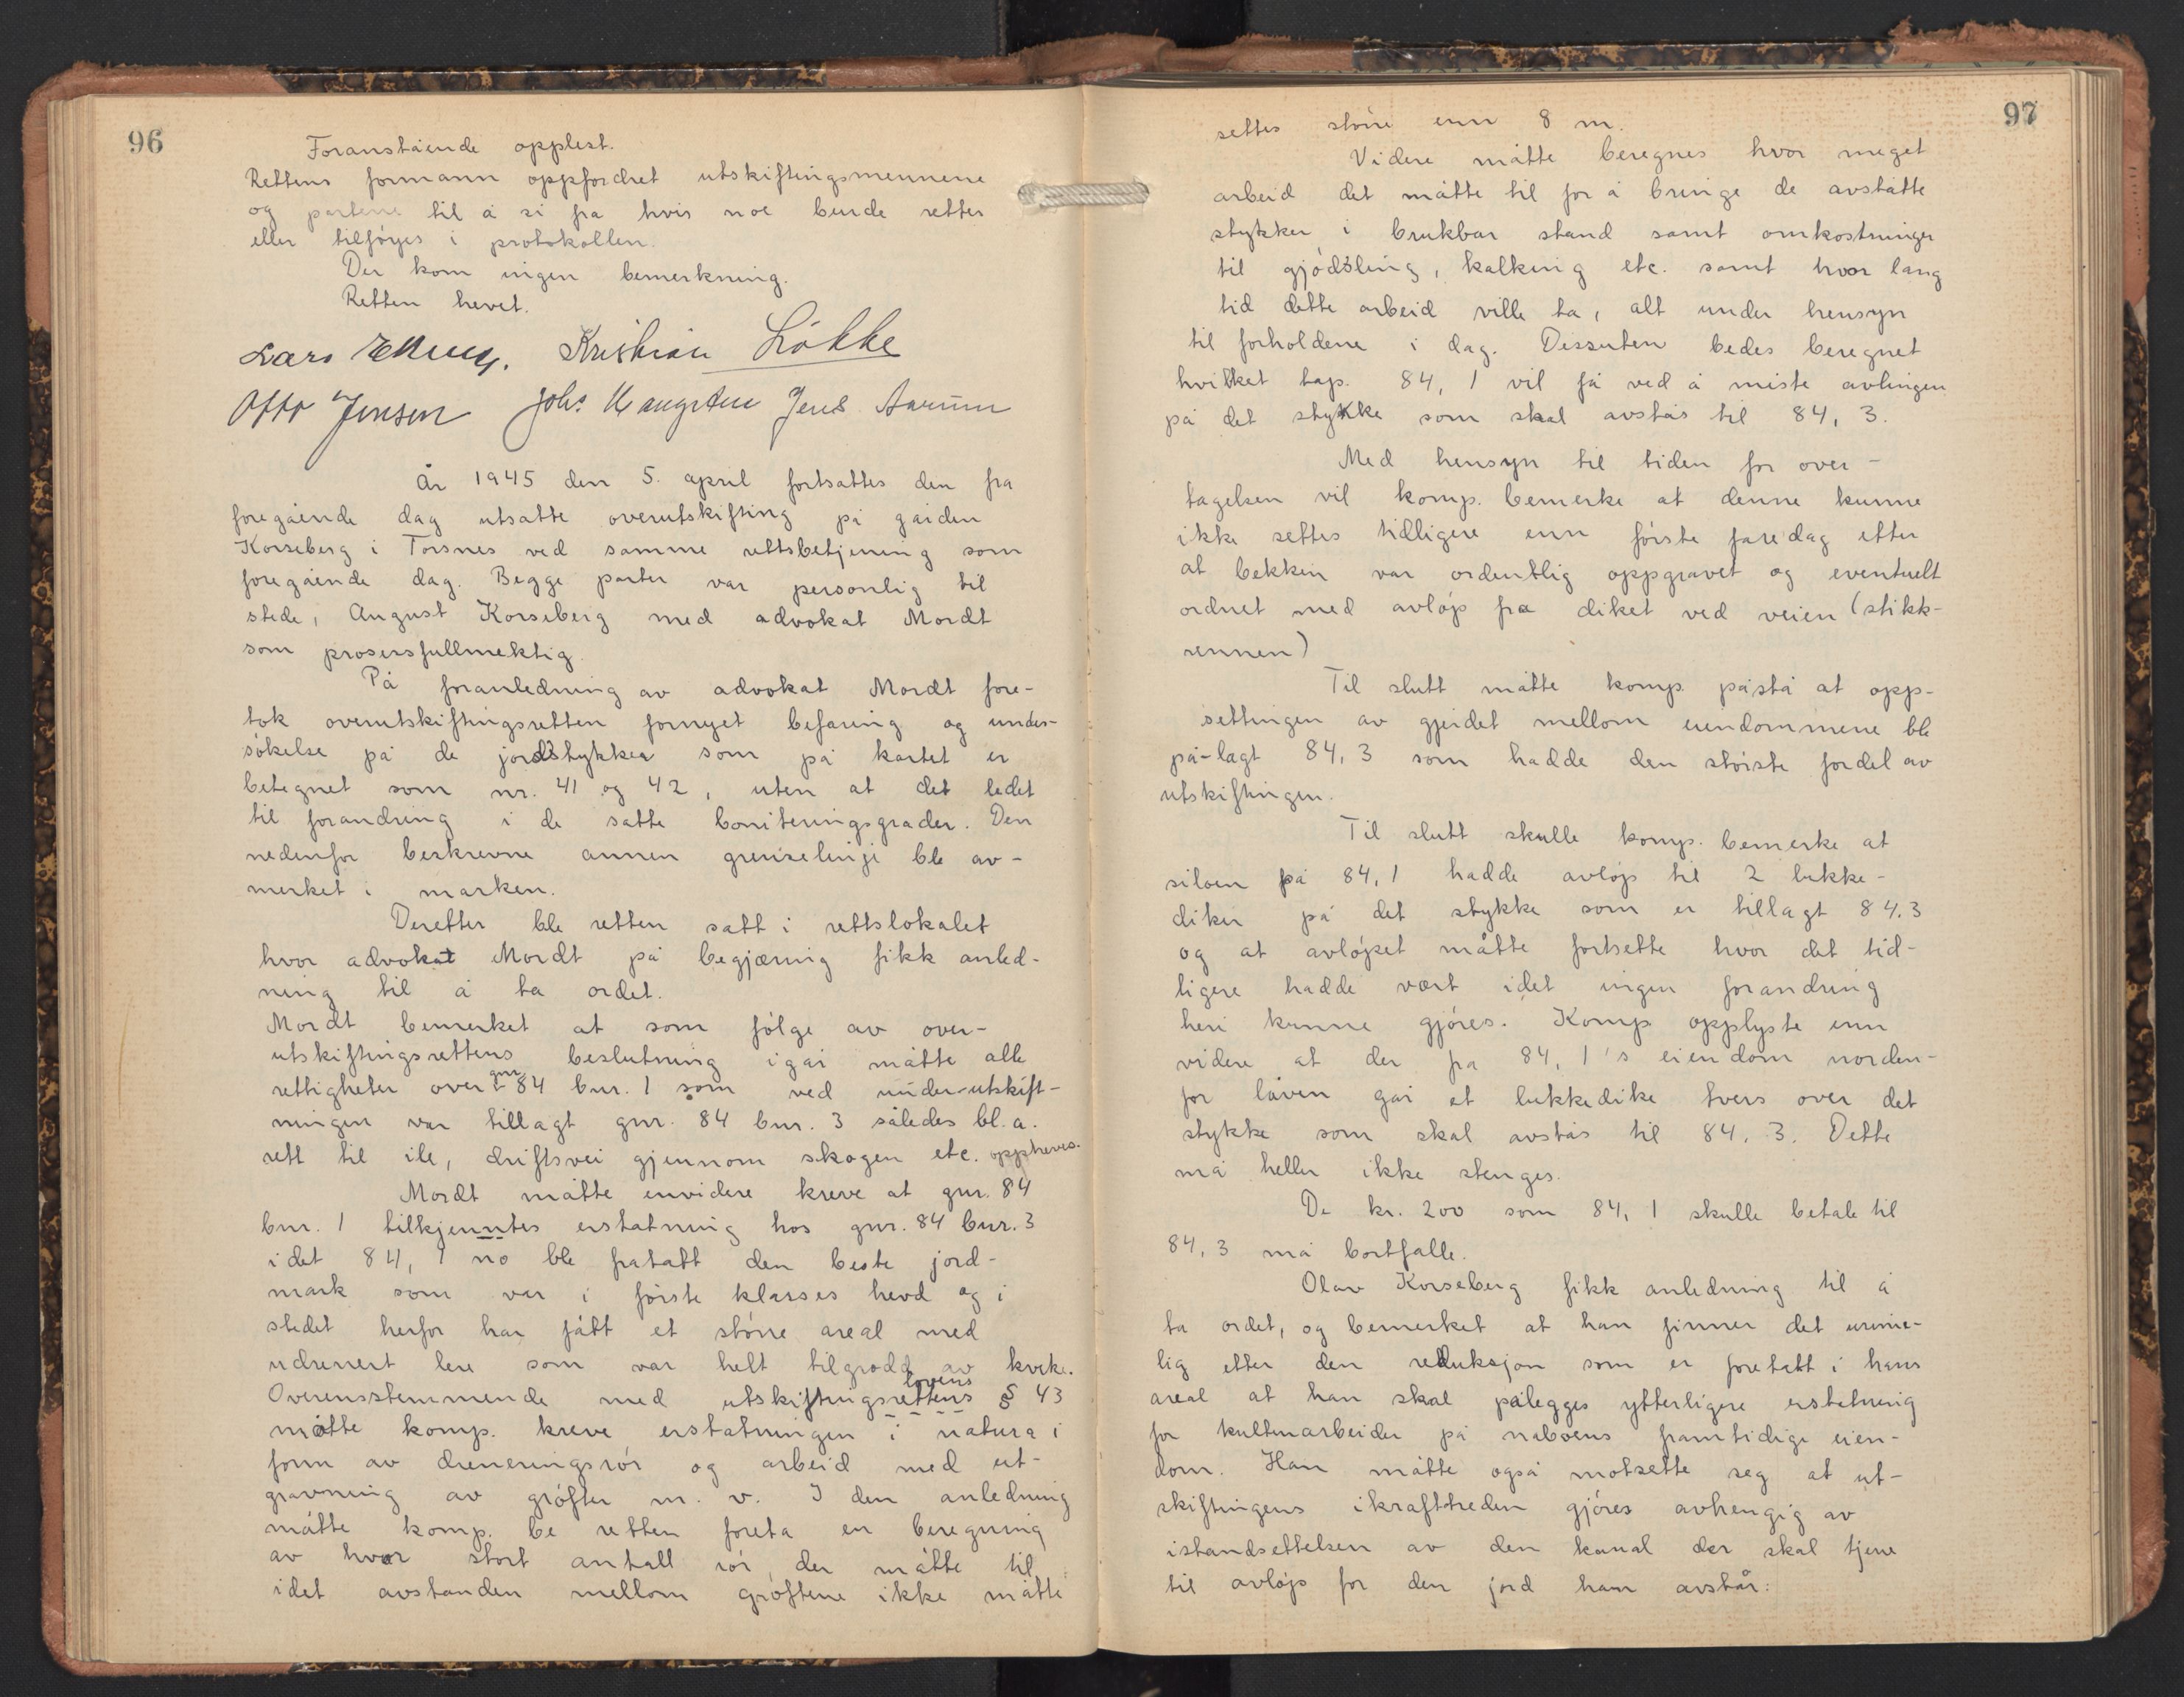 96
Foranstående opplest.
Rettens formann oppfordret utskiftingsmennene
og partene til å si fra hvis noe burde rettes
eller tilföyes i protokollen.
Der kom ingen bemerkning.
Retten hevet.
Lars Kristian Lökke
Otto Jensen Johs. Jens Aarum
År 1945 den 5. april fortsattes den fra
foregående dag utsatte overutskifting på gården
Korseberg i Torsnes ved samme rettsbetjening som
foregående dag. Begge parter var personlig til
stede, August Korseberg med advokat Mordt
som prosessfullmektig.
På foranledning av advokat Mordt fore-
tok overutskiftingsretten fornyet befaring og under-
sökelse på de jordstykker som på kartet er
betegnet som nr. 41 og 42, uten at det ledet
til forandring i de satte boniteringsgrader. Den
nedenfor beskrevne annen grenselinje ble av-
merket i marken.
Deretter ble retten satt i rettslokalet
hvor advokat Mordt på begjæring fikk anled-
ning til å ta ordet.
Mordt bemerket at som fölge av over-
utskiftingsrettens beslutning igår måtte alle
rettigheter over gnr. 84 bnr. 1 som ved under-utskift-
ningen var tillagt gnr. 84 bnr. 3 således bl.a.
rett til ile, driftsvei gjennom skogen etc. oppheves.
Mordt måtte envidere kreve at gnr. 84
bnr. 1 tilkjenntes erstatning hos gnr. 84 bnr. 3
idet 84, 1 no ble fratatt den beste jord-
mark som var i förste klasses hevd og i
stedet herfor har fått et större areal med
udrenert lere som var helt tilgrodd av kveke.
Overensstemmende med utskiftingsrettens lovens § 43
måtte komp. kreve erstatningen i natura i
form av dreneringsrör og arbeid med ut-
gravning av gröfter m. v. I den anledning
måtte komp. be retten foreta en beregning
av hvor stort antall rör der måtte til,
idet avstanden mellom gröftene ikke måtte
97
settes större enn 8 m.
Videre måtte beregnes hvor meget
arbeid det måtte til for å bringe de avståtte
stykker i brukbar stand samt omkostninger
til gjödsling, kalking etc. samt hvor lang
tid dette arbeid ville ta, alt under hensyn
til forholdene i dag. Dessuten bedes beregnet
hvilket tap 84, 1 vil få ved å miste avlingen
på det stykke som skal avstås til 84, 3.
Med hensyn til tiden for over-
tagelsen vil komp. bemerke at denne kunne
ikke settes tidligere enn förste faredag etter
at bekken var ordentlig oppgravet og eventuelt
ordnet med avlöp fra diket ved veien (stikk-
rennen)
Til slutt måtte komp. påstå at opp-
settingen av gjerdet mellom eiendommene ble
på-lagt 84, 3 som hadde den störste fordel av
utskiftingen.
Til slutt skulle komp. bemerke at
siloen på 84, 1 hadde avlöp til 2 lukke-
diker på det stykke som er tillagt 84.3
og at avlöpet måtte fortsette hvor det tid-
ligere hadde vært idet ingen forandring
heri kunne gjöres. Komp opplyste enn
videre at der fra 84, 1's eiendom norden-
for låven går et lukkedike tvers over det
stykke som skal avstås til 84. 3. Dette
må heller ikke stenges.
De kr. 200 som 84, 1 skulle betale til
84, 3 må bortfalle.
Olav Korseberg fikk anledning til å
ta ordet, og bemerket at han finner det urime-
lig etter den reduksjon som er foretatt i hans
areal at han skal pålegges ytterligere erstatning
for kulturarbeider på naboens framtidige eien-
dom. Han måtte også motsette seg at ut-
skiftingens ikrafttreden gjöres avhengig av
istandsettelsen av den kanal der skal tjene
til avlöp for den jord han avstår.